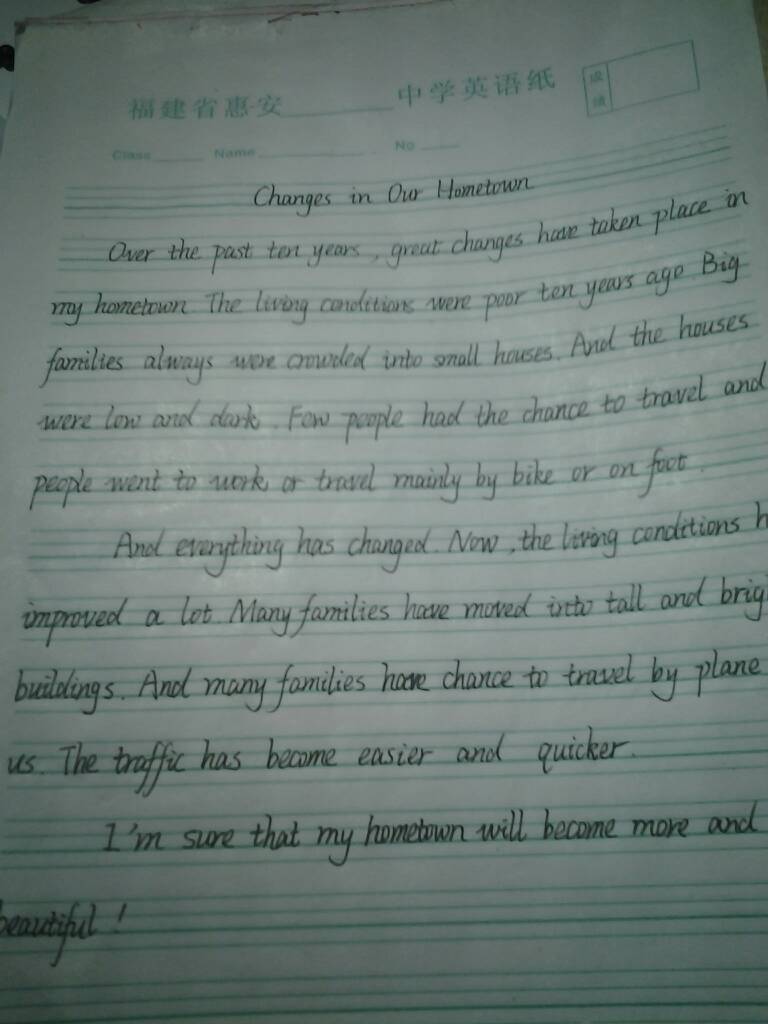 福建省惠安________中学英语纸
成绩
Class_____ Name__________ No____
Changes in Our Hometown
Over the past ten years, great changes have taken place in
my hometown. The living conditions were poor ten years ago. Big
families always were crowded into small houses. And the houses
were low and dark. Few people had the chance to travel and
people went to work or travel mainly by bike or on foot.
And everything has changed. Now, the living conditions h
improved a lot. Many families have moved into tall and brig
buildings. And many families have chance to travel by plane
us. The traffic has become easier and quicker.
I'm sure that my hometown will become more and
beautiful!